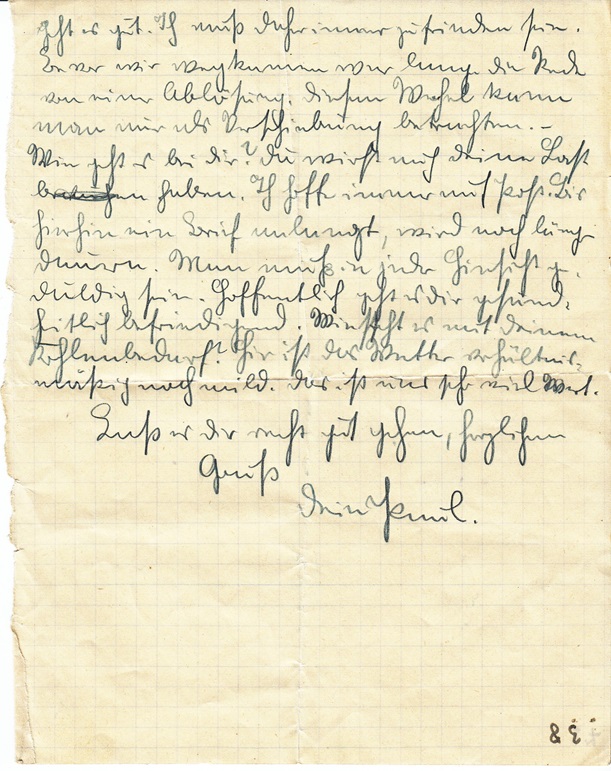 geht es gut. Ich muß daher immer zufrieden sein.
Bevor wir wegkamen war lange die Rede
von einer Ablösung, diesen Wechsel kann
man nur als Verschiebung betrachten. –
Wie geht es bei dir? Du wirst auch deine Last
haben. Ich hoffe immer auf Post. Bis
hierhin ein Brief anlangt, wird noch lange
dauern. Man muß in jeder Hinsicht ge-
duldig sein. Hoffentlich geht es dir gesund-
heitlich befriedigend. Wie steht es mit deinem
Kohlenbedarf? Hier ist das Wetter verhältnis-
mäßig noch mild. Das ist uns sehr viel Wert.
Laß es dir recht gut gehen, herzlichen
Gruß
dein Paul.
38